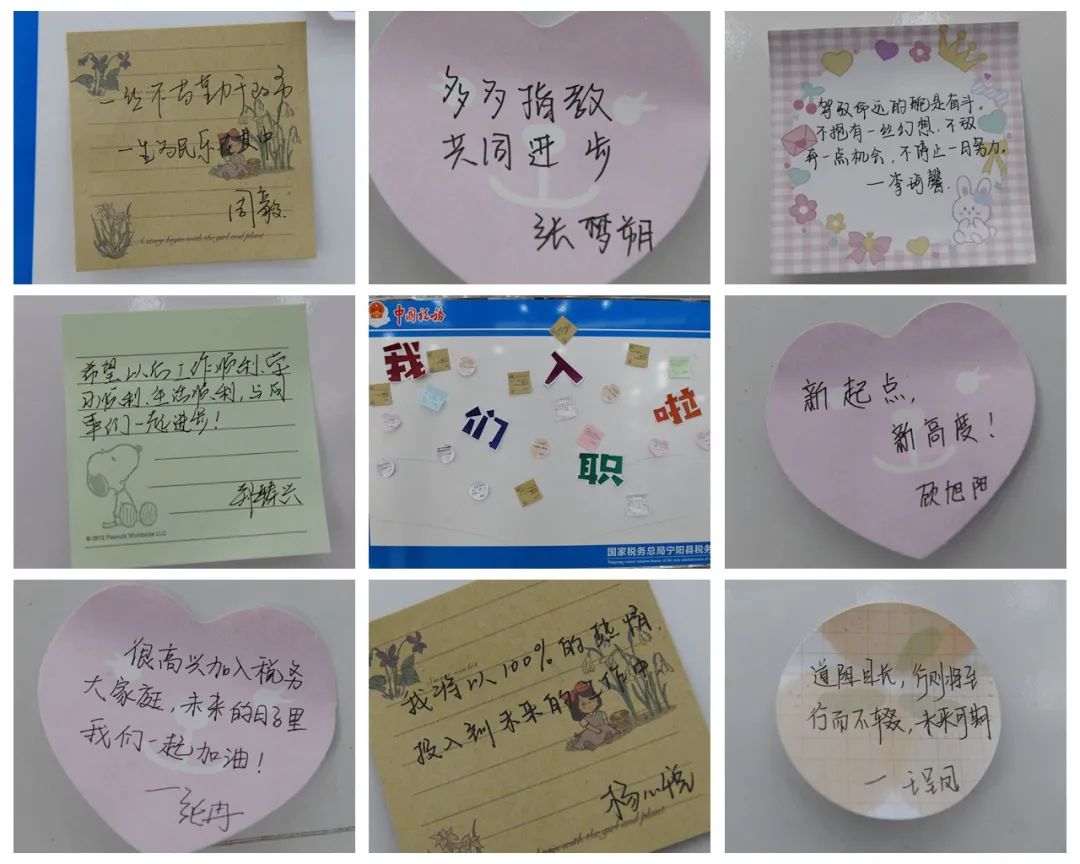 一丝不苟勤于政务
一生为民乐在其中
周毅
A story begin with the girl and plant
多多指教
共同进步
张梦朔
驾驭命运的舵是奋斗。
不抱有一丝幻想，不放
弃一点机会，不停止一日努力。
—李琦馨
希望以后工作顺利、学
习顺利、生活顺利，与同
事们一起进步！
兴
© 2012 Peanuts Worldwide LLC
中国税务
我们入职啦
国家税务总局宁阳县税务
新起点，
新高度！
顾旭阳
很高兴加入税务
大家庭，未来的日子里
我们一起加油！
—张冉
我将以100%的热情
投入到未来的工作中
杨心悦
begin with the girl and plant
道阻且长，行则将至
行而不辍，未来可期
—王呈凤